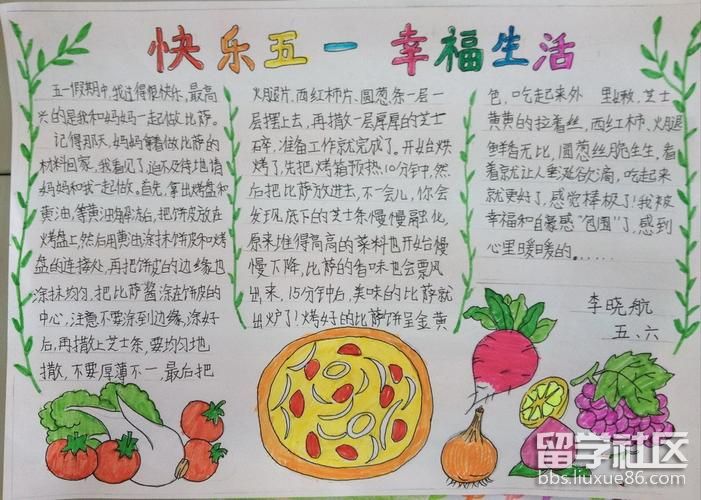 快乐五一 幸福生活
五一假期中,我过得很快乐,最高
兴的是我和妈妈一起做比萨。
记得那天,妈妈拿着做比萨的
材料回家,我看见了,迫不及待地请
妈妈和我一起做。首先,拿出烤盘和
黄油,等黄油解冻后,把饼皮放在
烤盘上,然后用黄油涂抹饼皮和烤
盘的连接处,再把饼皮的边缘也
涂抹均匀,把比萨酱涂在饼皮的
中心,注意不要涂到边缘,涂好
后,再撒上芝士条,要均匀地
撒,不要厚薄不一,最后把
火腿片,西红柿片,圆葱条一层一
层摆上去,再撒一层厚厚的芝士
碎,准备工作就完成了。开始烘
烤了,先把烤箱预热10分钟,然
后把比萨放进去,不一会儿,你会
发现底下的芝士条慢慢融化,
原来堆得高高的菜料也开始慢
慢下降,比萨的香味也会飘风
出来,15分钟后,美味的比萨就
出炉了!烤好的比萨饼呈金黄
色,吃起来外 里嫩,芝士
黄黄的拉着丝,西红柿,火腿
鲜香无比,圆葱丝脆生生,看
着就让人垂涎欲滴,吃起来
就更好了,感觉棒极了!我被
幸福和自豪感“包围”了,感到
心里暖暖的……
李晓航
五、六
留学社区
bbs.liuxue86.com